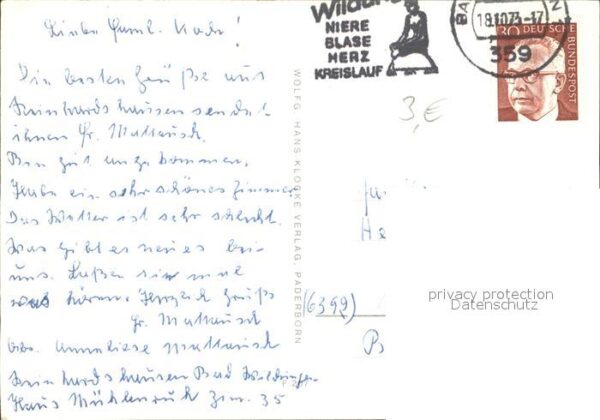 Liebe Faml. Koch!
Die besten Grüße aus
Reinhardshausen sendet
ihnen Fr. Mattausch.
Bin gut angekommen,
Habe ein sehr schönes Zimmer.
Das Wetter ist sehr schlecht.
Was gibt es neues bei
uns. Laßen sie mal
was hören. Herzlich Grüßt
Fr. Mattausch
Abs. Anneliese Mattausch
Reinhardshausen Bad Wildungen
Haus Mühlengrund Zim. 35
WOLFG. HANS KLOCKE VERLAG, PADERBORN
Wildungen
NIERE
BLASE
HERZ
KREISLAUF
BA
18.10.73-17
359
30 DEUTSCHE
BUNDESPOST
3,€
He
(6399)
privacy protection
Datenschutz